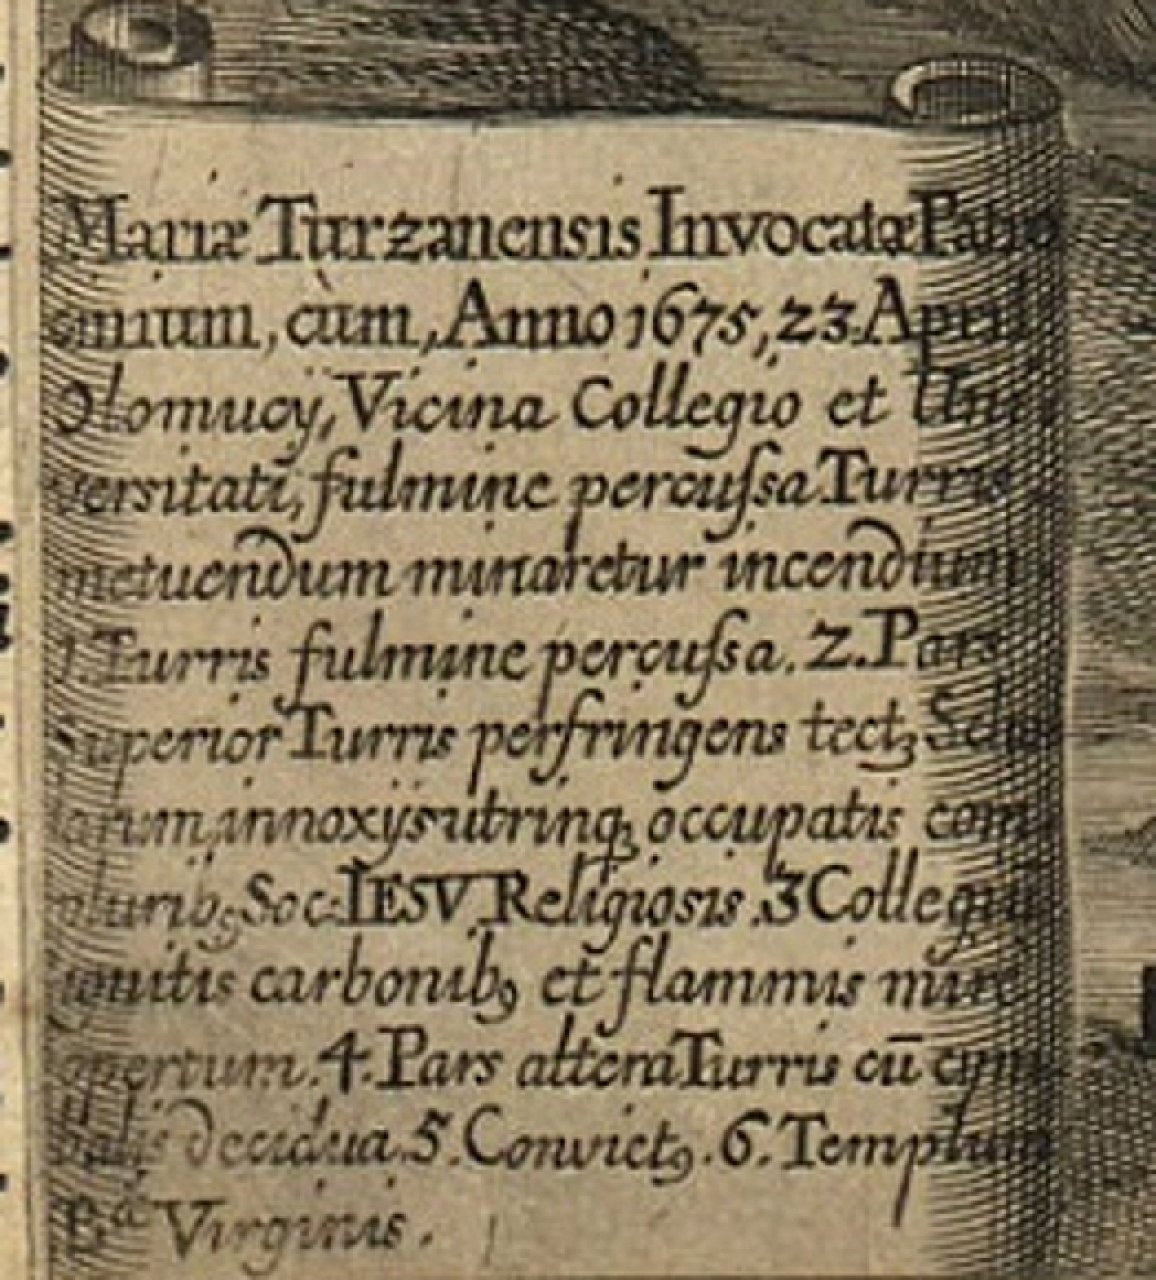 Mariæ Turzanensis Invocatæ Patro
cinium, cùm, Anno 1675, 23. April
Olomucy, Vicina Collegio et Uni
versitati, fulmine percuſsa Turris
metuendum minaretur incendium
1. Turris fulmine percuſsa. 2. Pars
Superior Turris perfringens tectꝫ Scho
larum, innoxijs utrinqꝫ occupatis com
pluribꝰ Soc: IESV Religiosis. 3 Collegiū
ignitis carbonibꝰ et flammis mire
opertum. 4. Pars altera Turris cū cym
balis decidua. 5. Convictꝰ. 6. Templum
B.ᵃ Virginis.